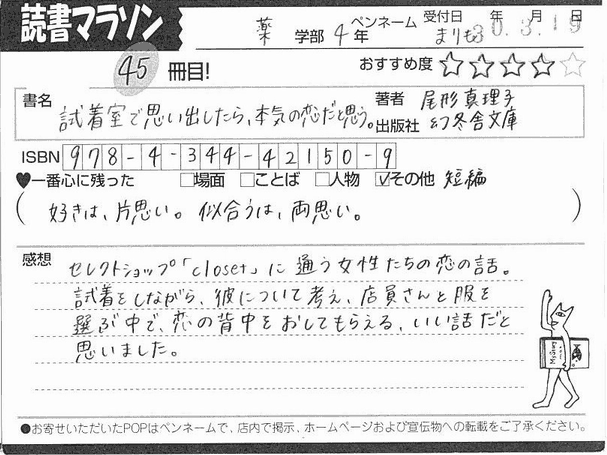 読書マラソン
薬 学部 4 年 ペンネーム まりも3 受付日 年 月 日
0.3.19
45 冊目! おすすめ度 ☆☆☆☆☆
書名 試着室で思い出したら、本気の恋だと思う。
著者 尾形真理子
出版社 幻冬舎文庫
ISBN 978-4-344-42150-9
♥一番心に残った □場面 □ことば □人物 ☑その他 短編
( 好きは、片思い。似合うは、両思い。 )
感想 セレクトショップ「closet」に通う女性たちの恋の話。
試着をしながら、彼について考え、店員さんと服を
選ぶ中で、恋の背中をおしてもらえる、いい話だと
思いました。
●お寄せいただいたPOPはペンネームで、店内で掲示、ホームページおよび宣伝物への転載をご了承ください。